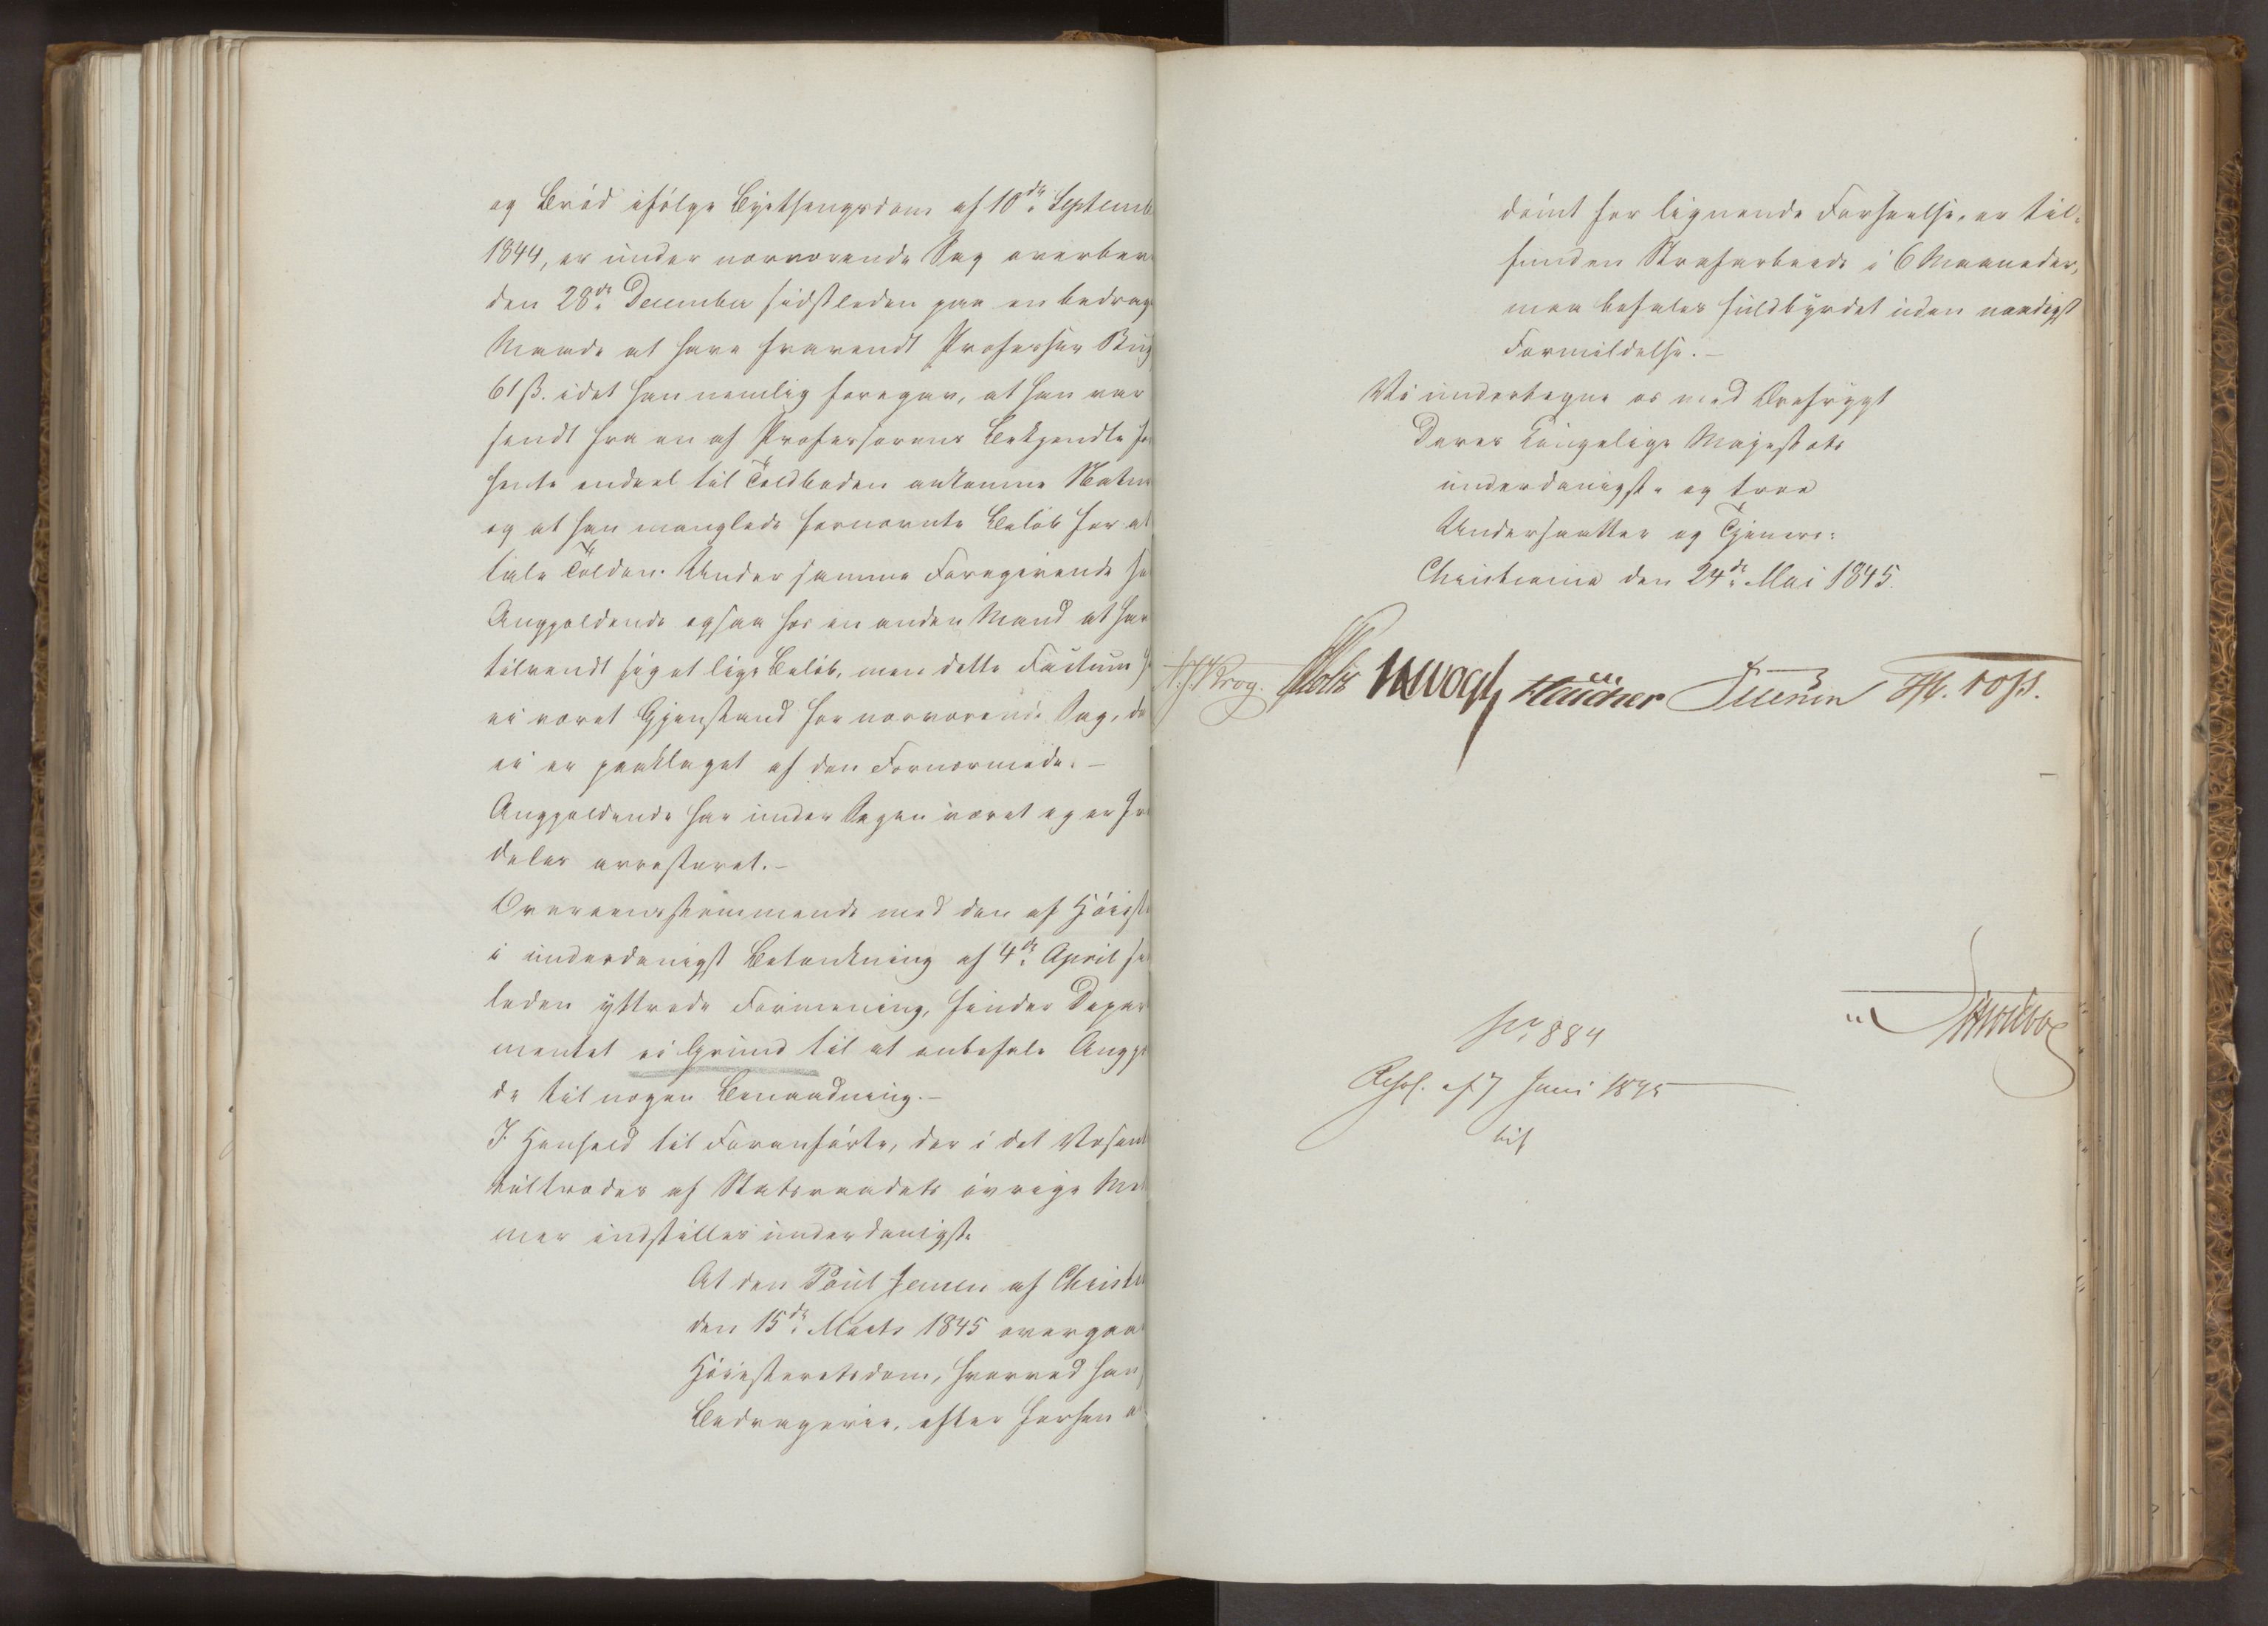 og Brød ifølge Byethingsdom af 10de Septemb
1844, er under nærværende Sag overbev
den 28de December sidstleden paa en bedrag
Maade at have fravendt Professor
61 ß. idet han nemlig foregav, at han var
sendt fra en af Professorens Bekjendte for
hente endeel til Toldboden ankomne
og at han manglede fornævnte Beløb for at
tale Tolden. Under samme Foregivende ha
Anggjeldende ogsaa hos en anden Mand at hav
tilvendt sig et lige Beløb, men dette Factum
ei været Gjenstand for nærværende Sag, da
ei er paaklaget af den Fornærmede. –
Anggjeldende har under Sagen været og er fre
deles arresteret. –
Overeensstemmende med den af Høiest
i underdanigst Betænkning af 4de April
leden yttrede Formening, finder Depar
mentet ei Grund til at anbefale Anggj
de til nogen Benaadning. –
I Henhold til Foranførte, der i det Væsent
tiltrædes af Statsraadets øvrige Med
mer indstilles underdanigst:
At den Poul Jensen af Christi
den 15de Marts 1845 overgaa
Høiesteretsdom, hvorved han
Bedragerie, efter forhen
dømt for lignende Forseelse, er til-
funden Strafarbeide i 6 Maaneder,
maa befales fuldbyrdet uden naadigst
Formildelse. –
Vi undertegne os med Ærefrygt
Deres Kongelige Majestæts
underdanigste og troe
Undersaatter og Tjenere:
Christiania den 24de Mai 1845.
Krog. Holst Vogt
No. 884
Resol. af 7 Juni 1845